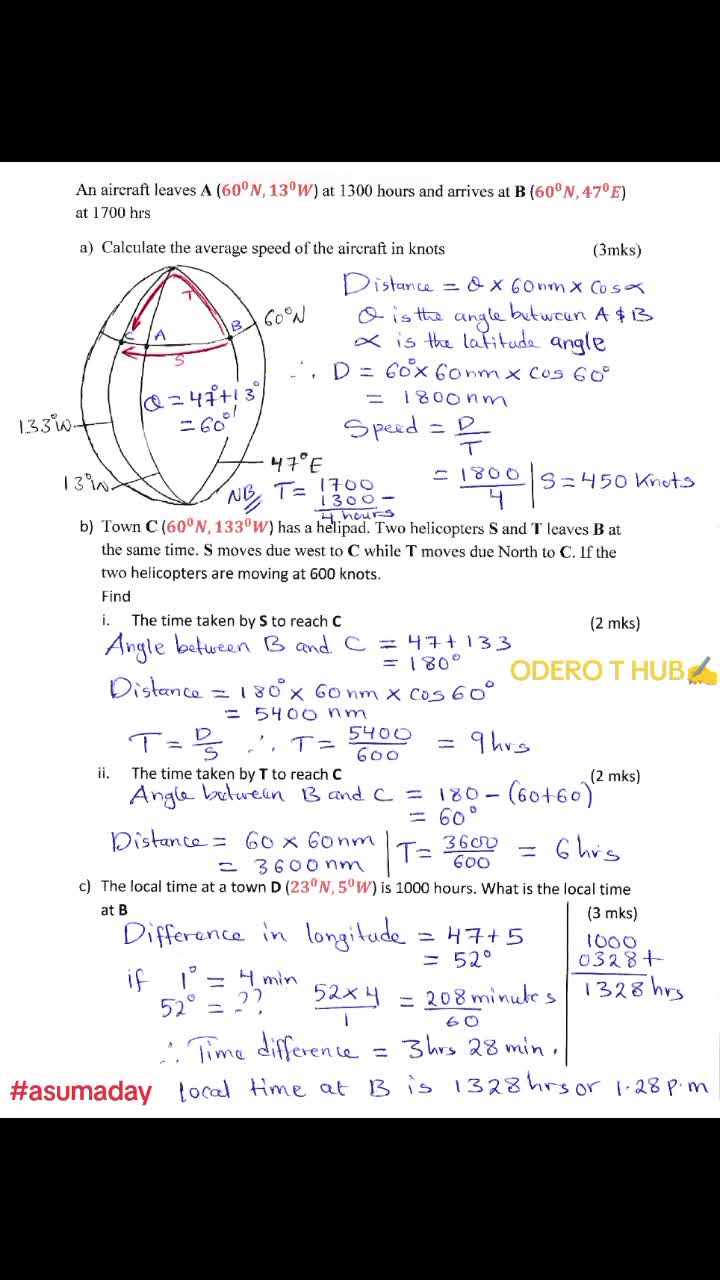 An aircraft leaves A (60⁰N, 13⁰W) at 1300 hours and arrives at B (60⁰N, 47⁰E)
at 1700 hrs
a) Calculate the average speed of the aircraft in knots (3mks)
Distance = θ × 60nm × Cos∝
θ is the angle between A & B
∝ is the latitude angle
∴ D = 60° × 60nm × cos 60°
= 1800nm
Speed = D/T
= 1800/4 | S = 450 Knots
T
60°N
C A B
S
θ = 47° + 13°
= 60°
133°W
47°E
13°W
NB T = 1700
1300 –
4 hours
b) Town C (60⁰N, 133⁰W) has a helipad. Two helicopters S and T leaves B at
the same time. S moves due west to C while T moves due North to C. If the
two helicopters are moving at 600 knots.
Find
i. The time taken by S to reach C (2 mks)
Angle between B and C = 47 + 133
= 180°
ODERO T HUB✍
Distance = 180° × 60nm × cos 60°
= 5400 nm
T = D/S ∴ T = 5400/600 = 9hrs
ii. The time taken by T to reach C (2 mks)
Angle between B and C = 180 – (60+60)
= 60°
Distance = 60 × 60nm | T = 3600/600 = 6hrs
= 3600nm
c) The local time at a town D (23⁰N, 5⁰W) is 1000 hours. What is the local time
at B (3 mks)
Difference in longitude = 47 + 5
= 52°
1000
0328 +
1328 hrs
if 1° = 4 min
52° = ?? 52 × 4/1 = 208 minutes/60
∴ Time difference = 3hrs 28 min.
#asumaday local time at B is 1328hrs or 1.28 p.m